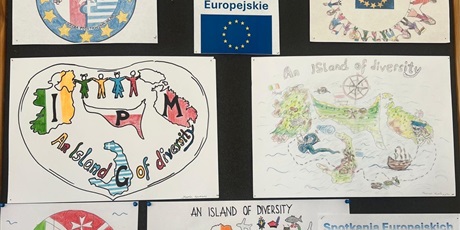 Europejskie
I P M
An Island C of diversity
An ISland of diversity
AN ISLAND OF DIVERSITY
Spotkania Europejskich